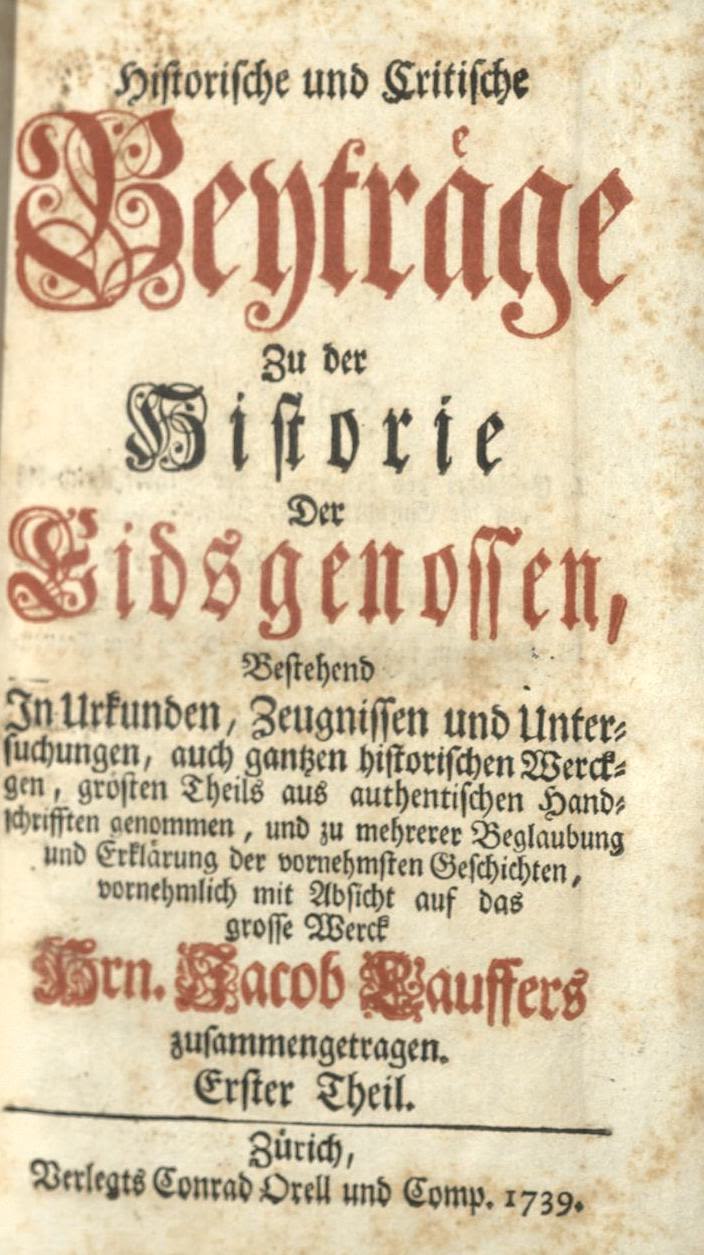 Historische und Critische
Beyträge
Zu der
Historie
Der
Eidsgenossen,
Bestehend
In Urkunden, Zeugnissen und Unter-
suchungen, auch gantzen historischen Werck-
gen, grösten Theils aus authentischen Hand-
schrifften genommen, und zu mehrerer Beglaubung
und Erklärung der vornehmsten Geschichten,
vornehmlich mit Absicht auf das
grosse Werck
Hrn. Jacob Lauffers
zusammengetragen.
Erster Theil.
Zürich,
Verlegts Conrad Orell und Comp. 1739.